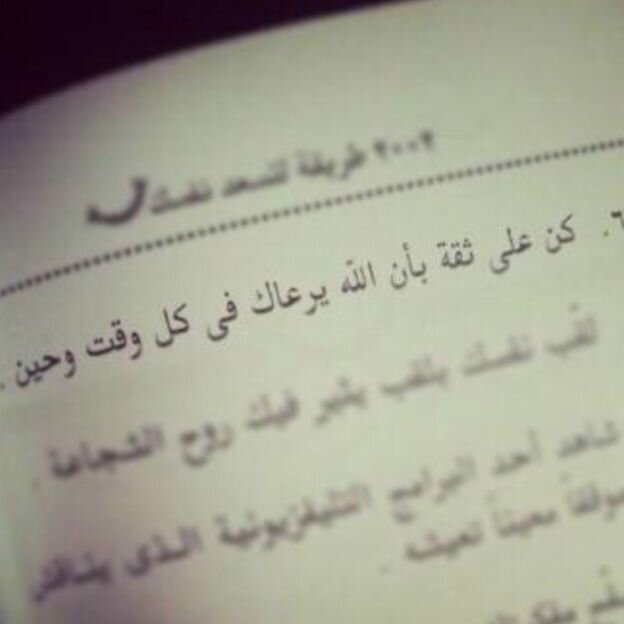 ٢٠٠٢ طريقة لتسعد نفسك
٦. كن على ثقة بأن الله يرعاك فى كل وقت وحين .
لقّب نفسك بلقب يثير فيك روح الشجاعة .
شاهد أحد البرامج التليفزيونية الذى يناقش
موقفاً معيناً تعيشه .